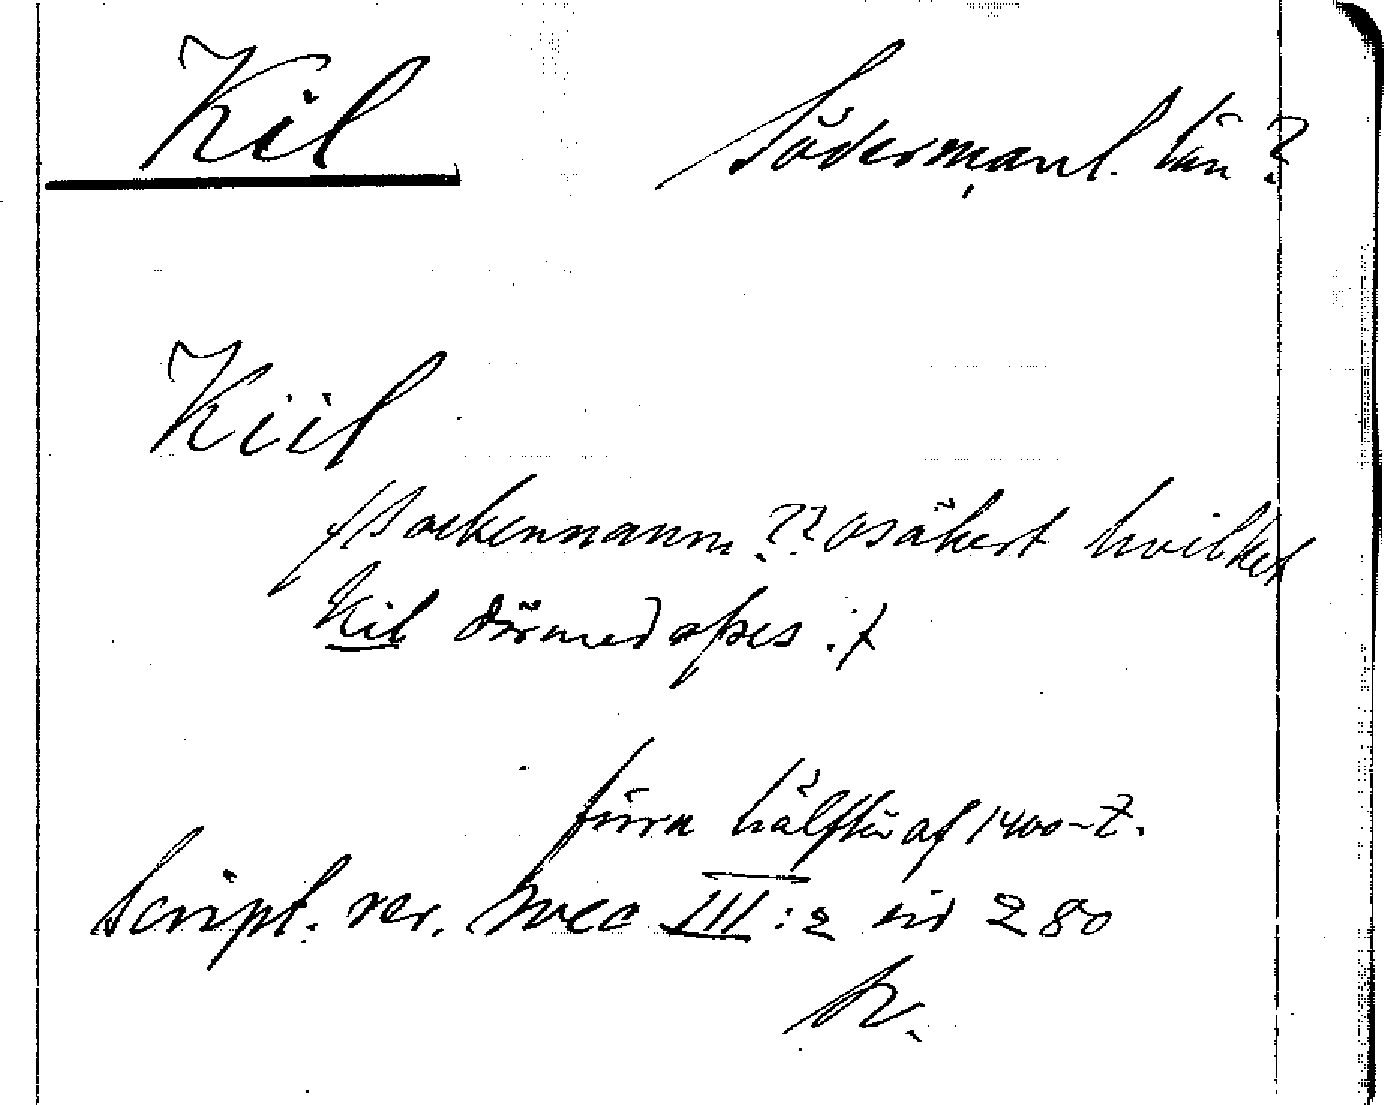 Kil Södermanl. län ?
Kiil
/sockennamn ?? osäkert hvilket
Kil därmed afses ./
förra hälften af 1400-t.
Script. rer. Svec III:2 sid 280